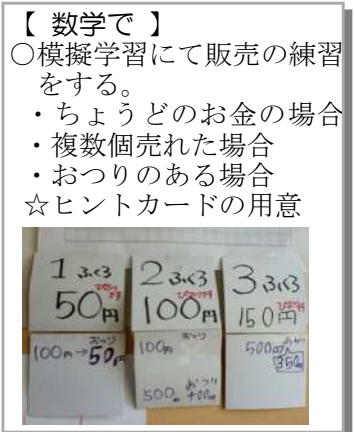 【 数学で 】
○模擬学習にて販売の練習
をする。
・ちょうどのお金の場合
・複数個売れた場合
・おつりのある場合
☆ヒントカードの用意
1ふくろ
50円
2ふくろ
100円
3ふくろ
150円
おつり
100円→50円
おつり
100円
500円 おつり400円
500円
350円